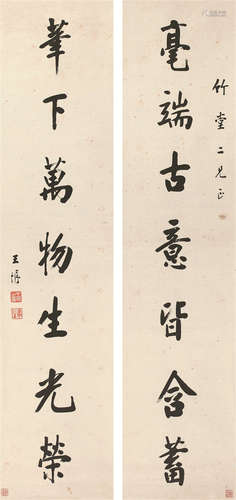 竹堂二兄正
毫端古意皆含蓄
筆下萬物生光榮
王